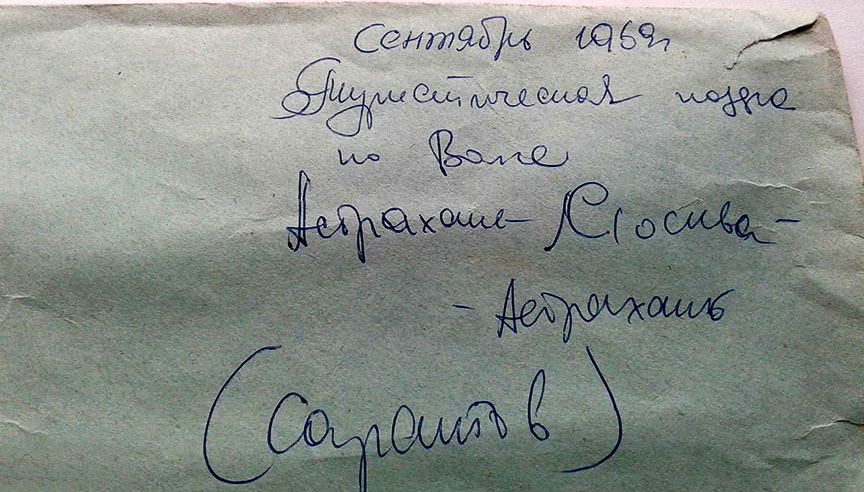 Сентябрь 1969г.
Туристическая поездка
по Волге
Астрахань - Москва -
- Астрахань
(Саратов)